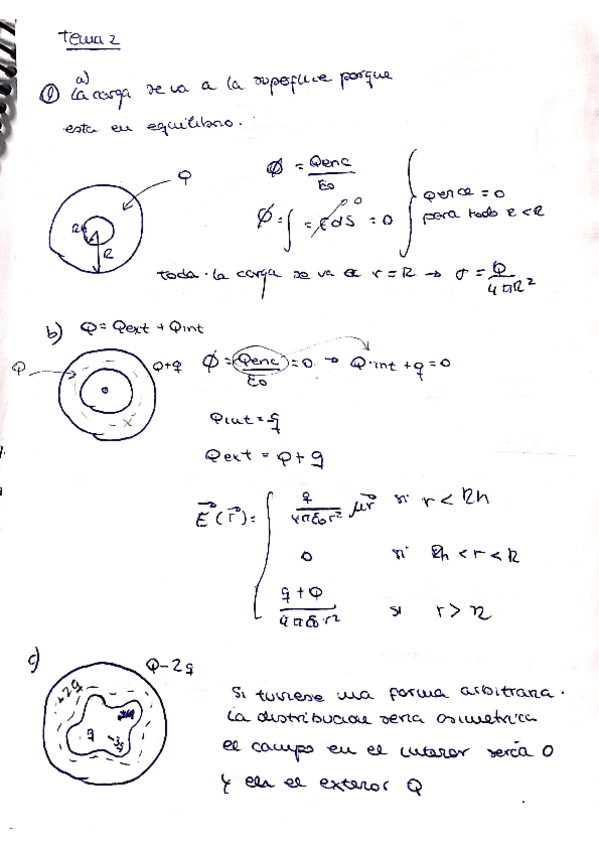 Tema 2
① a) La carga se va a la superficie porque
esta en equilibro.
Q
Φ = Qenc / ε0
Φ = ∫ = E ds = 0
0 0
Qence = 0
para todo r < R
Rh
R
toda la carga se va a r = R → σ = Q / 4πR²
b) Q = Qext + Qint
Q
Q+q
Φ = Qenc / ε0 = 0 → Qint + q = 0
- x
Qint = q
Qext = Q + q
E(r) =
q / 4πε0r² μr si r < Rh
0 si Rh < r < R
q + Q / 4πε0r² si r > R
c)
Q - 2q
+2q
q -3q
Si tuviese una forma arbitraria.
La distribucion seria asimetrica
el campo en el interior seria 0
y en el exterior Q